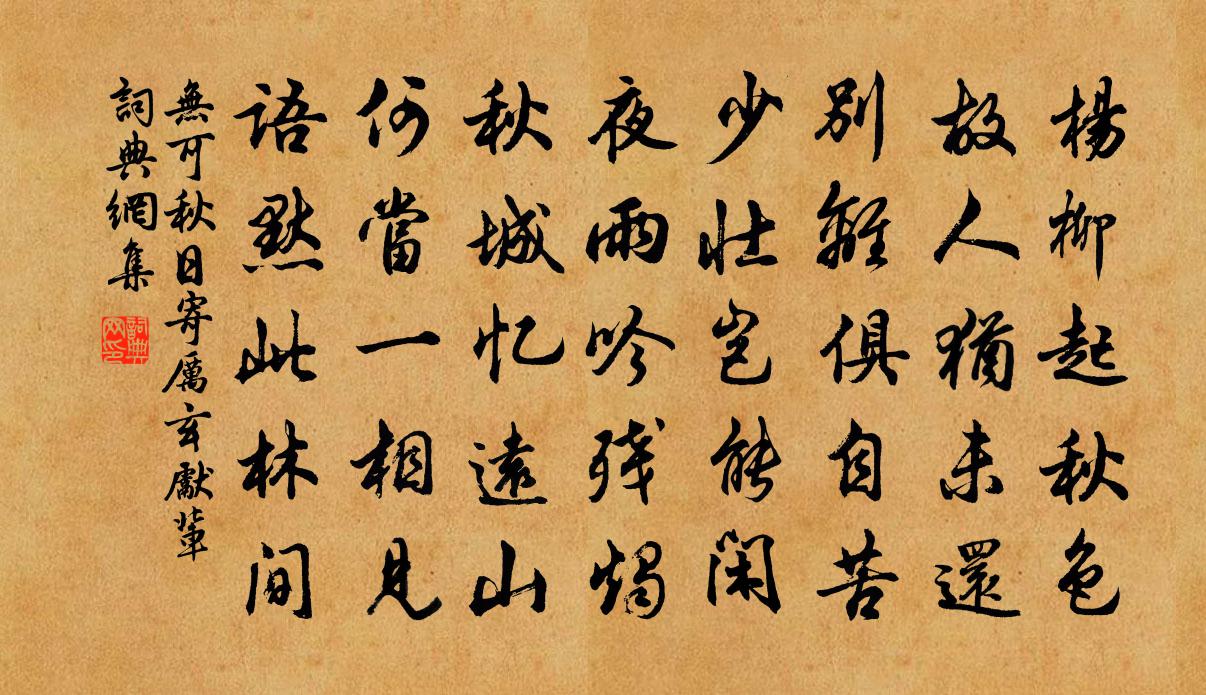 楊柳起秋色
故人猶未還
別離俱自苦
少壯豈能閑
夜雨吟残燭
秋城忆遠山
何當一相見
語默此林間
無可秋日寄厲玄獻輩
詞典網集
詞典网印